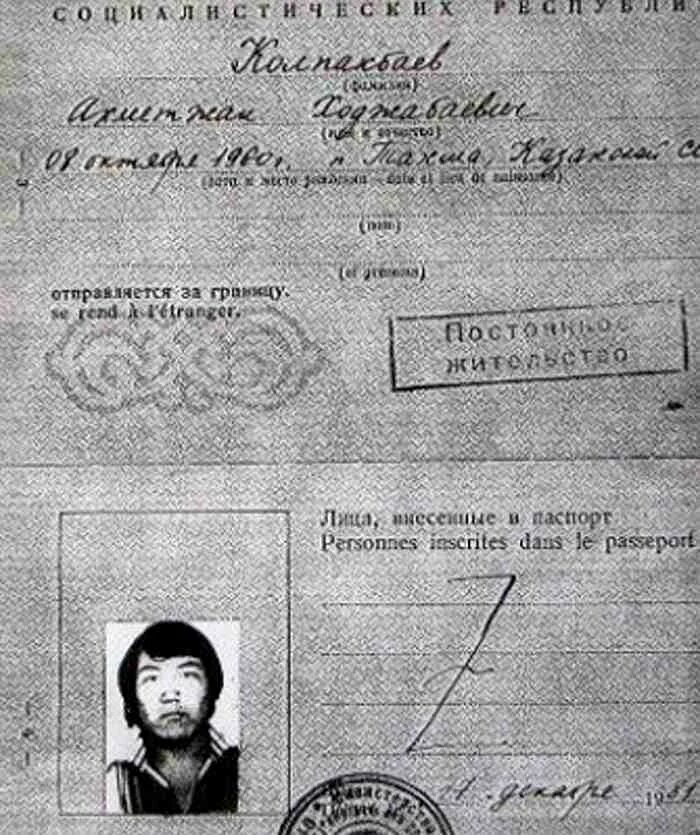 СОЦИАЛИСТИЧЕСКИХ РЕСПУБЛИ
Колпакбаев
(фамилия)
Ахметжан Ходжабаевич
(имя и отчество)
08 октября 1960г. Казахской
(дата и место рождения - date et lieu de naissance)
(nom)
(et prénoms)
отправляется за границу.
se rend à l'étranger.
Постоянное
жительство
Лица, внесенные в паспорт
Personnes inscrites dans le passeport
декабря 19